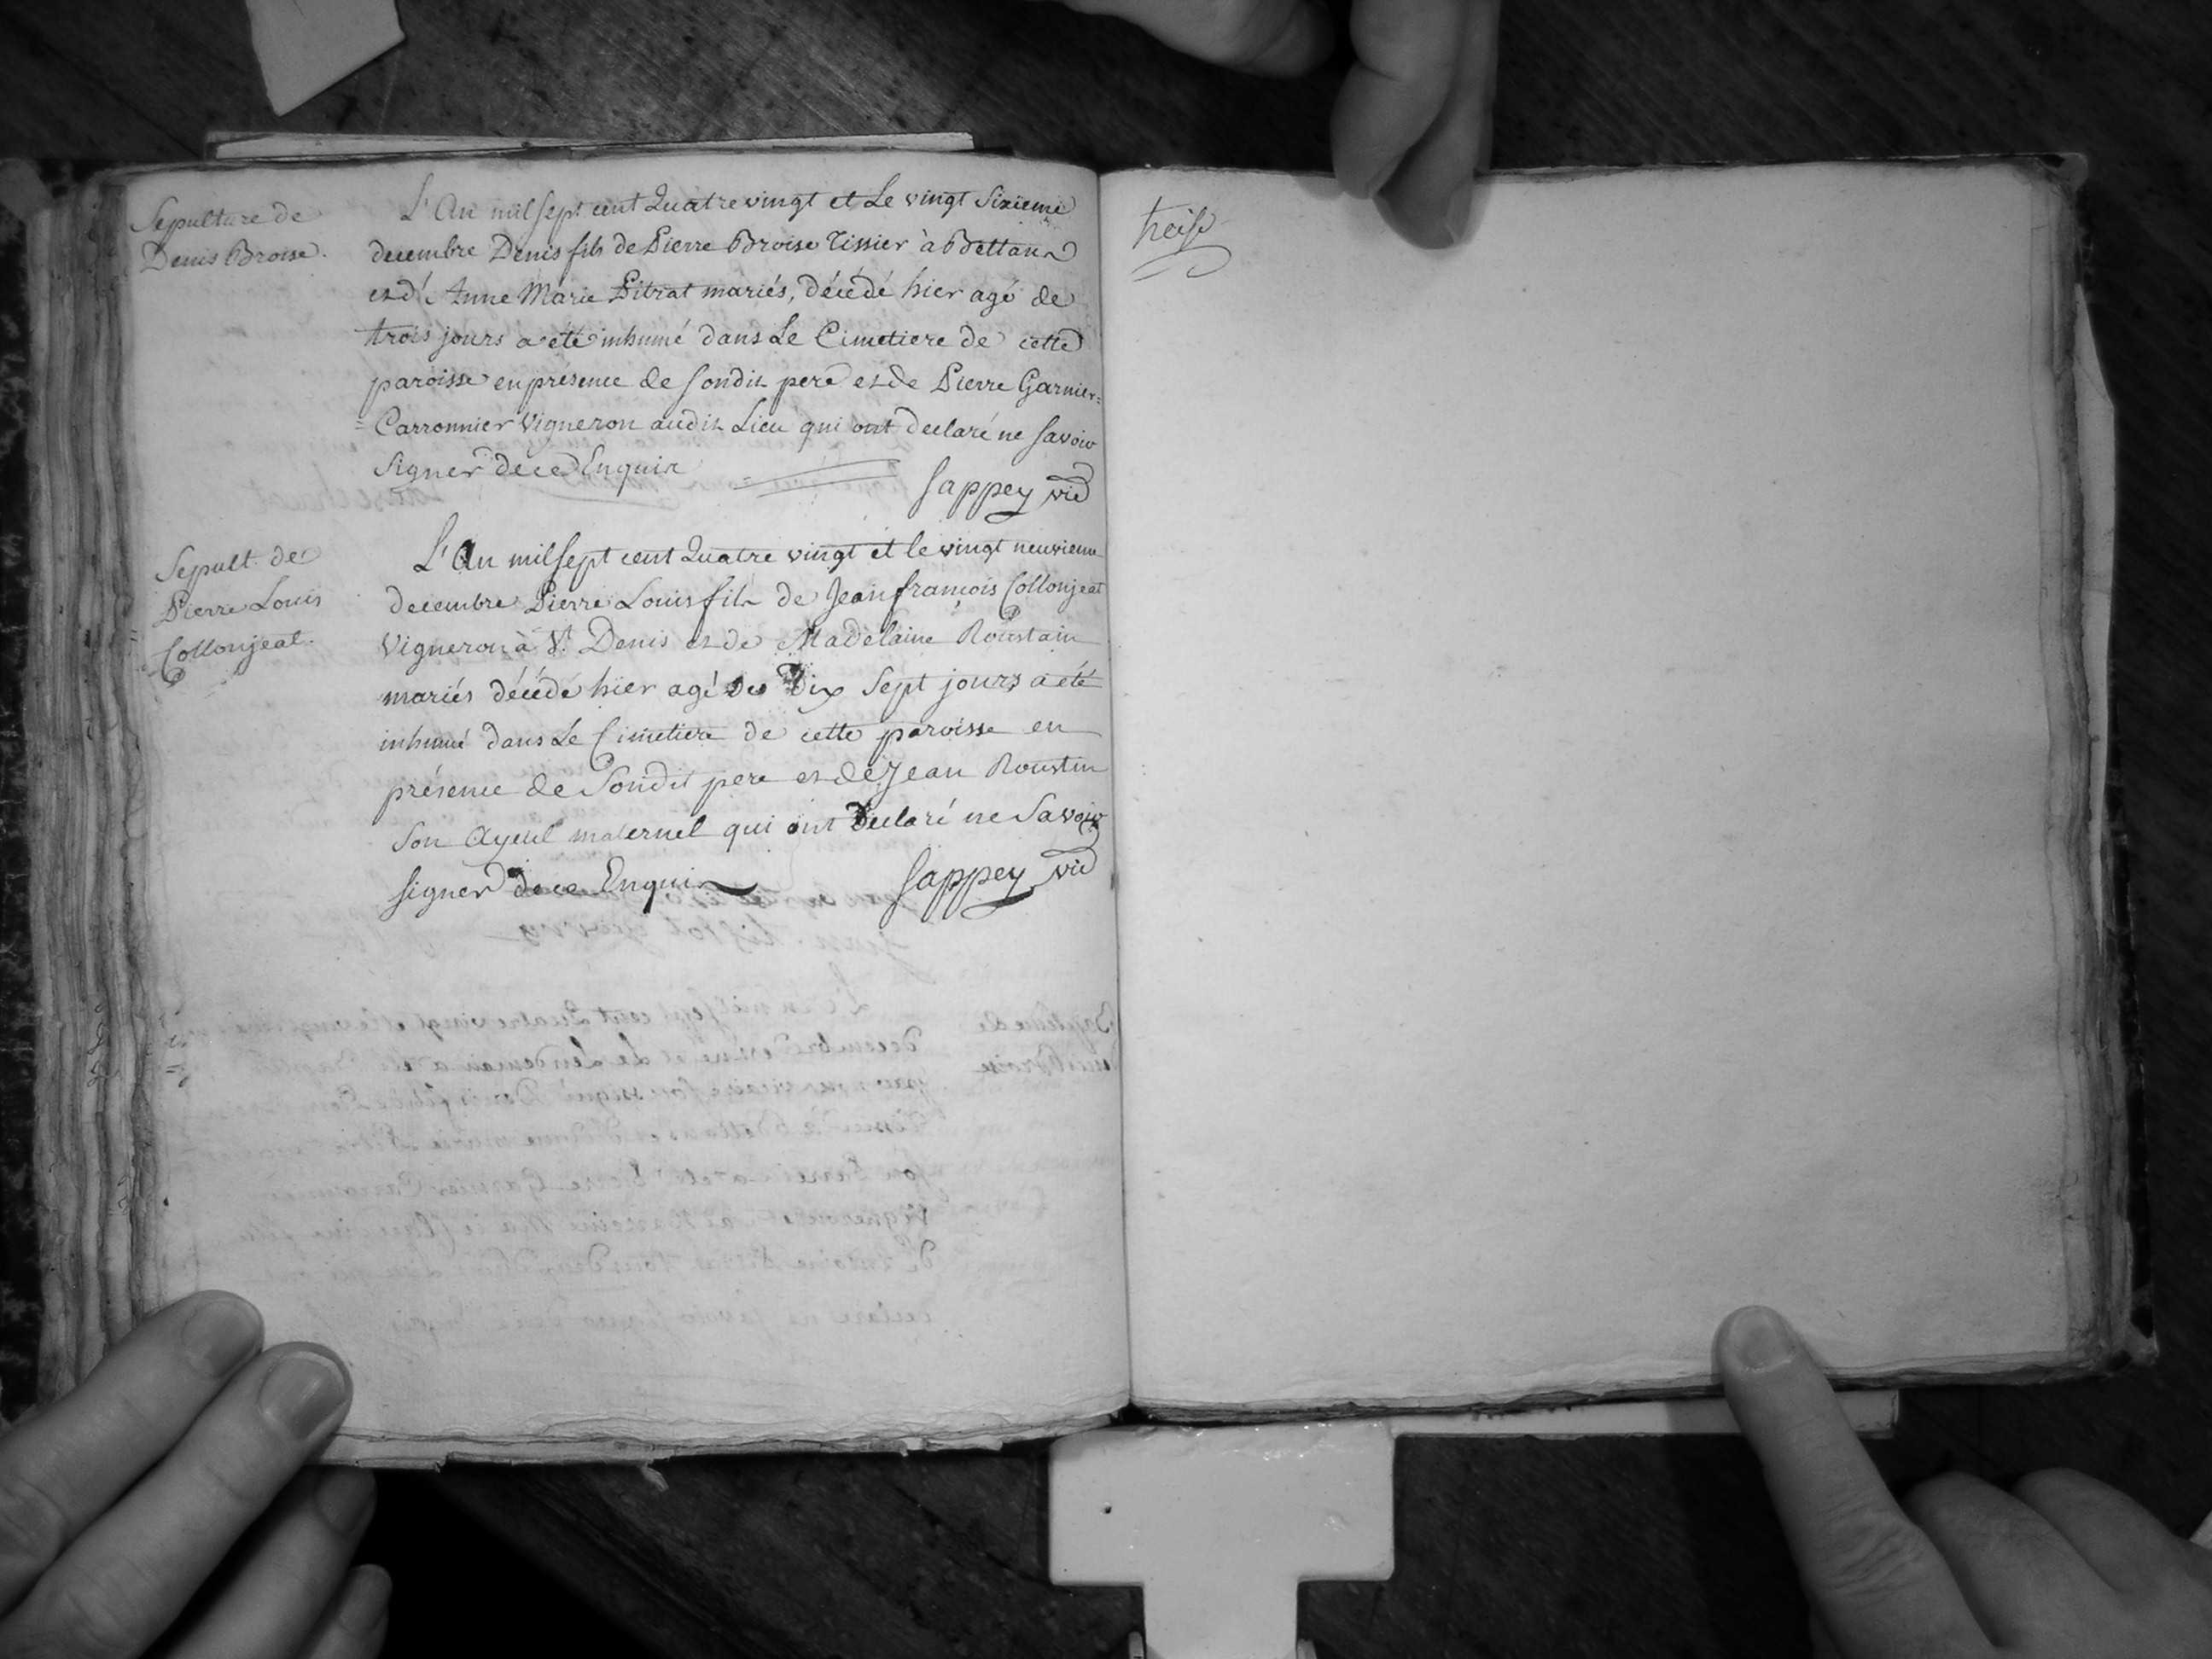 Sepulture de
Denis Broise.
L'An mil sept cent Quatre vingt et Le vingt Sixieme
decembre Denis fils de Pierre Broise Tissier à Bettans
et d'Anne Marie Pitrat mariés, décédé hier agé de
trois jours a été inhumé dans Le Cimetiere de cette
paroisse en présence de sondit pere et de Pierre Garnier=
=Carronnier Vigneron audit Lieu qui ont declaré ne savoir
signer de ce Enquis
Sappey vic
Sepult. de
Pierre Louis
Collonjeat.
L'An mil sept cent Quatre vingt et le vingt neuvieme
decembre Pierre Louis fils de Jean françois Collonjeat
Vigneron à St. Denis et de Madelaine Roustain
mariés décédé hier agé de Dix Sept jours a été
inhumé dans Le Cimetiere de cette paroisse en
présence de Sondit pere et de Jean Roustin
Son Ayeul maternel qui ont declaré ne Savoir
signer de ce Enquis
Sappey vic
treise